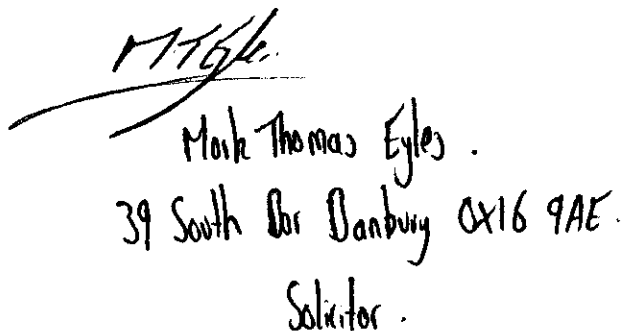 M.T. Eyles.
Mark Thomas Eyles.
39 South Bar Banbury OX16 9AE.
Solicitor.